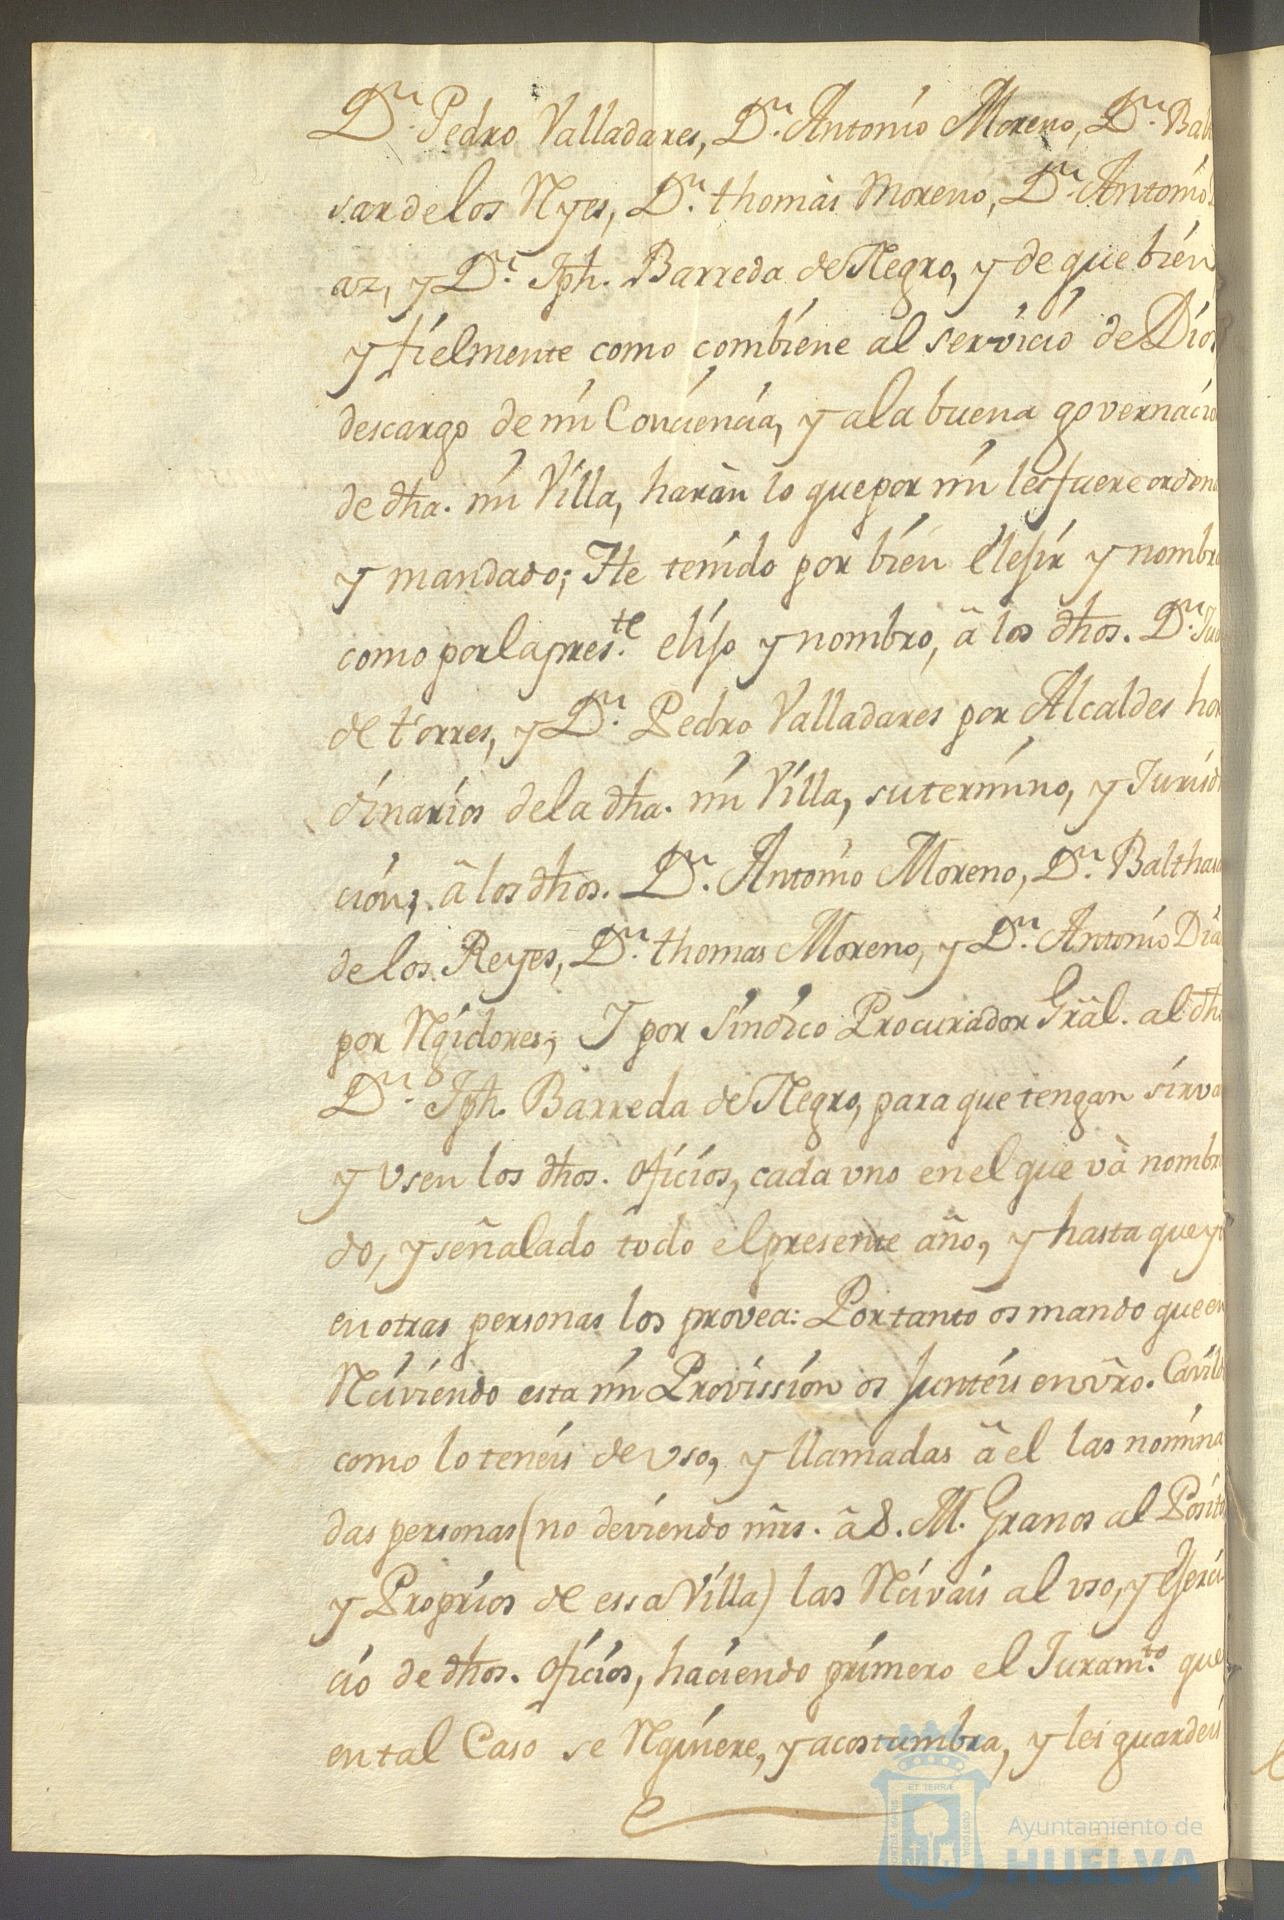 Dn. Pedro Valladares, Dn. Antonio Moreno, Dn. Balt
sar de los Ryes, Dn. thomàs Moreno, Dn. Antonio
az, y Dn. Jph. Barreda de Negro, y de que bien
y fielmente como combiene al servicio de Dios
descargo de mi Conciencia, y a la buena governacio
de dha. mi Villa, haràn lo que por mi les fuere ordena
y mandado; He tenido por bien elejir y nombra
como por la preste. elijo y nombro, â los dhos. Dn. Jua
de torres, y Dn. Pedro Valladares por Alcaldes hor
dinarios de la dha. mi Villa, su termino, y Jurisdi
cion; â los dhos. Dn. Antonio Moreno, Dn. Balthasa
de los Reyes, Dn. thomas Moreno, y Dn. Antonio Dia
por Rgidores; Y por Sindico Procurador Grâl. al dho
Dn. Jph. Barreda de Negro, para que tengan sirva
y Vsen los dhos. oficios, cada vno en el que và nombra
do, y señalado todo el presente año, y hasta que yo
en otras personas los provea: Por tanto os mando que en
Rciviendo esta mi Provission os Junteis en vrõ. Cavild
como lo teneis de vso, y llamadas â el las nomina
das personas (no deviendo mrs. â S. M. Granos al Posito
y Proprios de essa Villa) las Rcivais al vso, y Exerci
cio de dhos. oficios, haciendo primero el Juramto. que
en tal Caso se Rquiere, y acostumbra, y les guardeis
ET TERRÆ
Ayuntamiento de
HUELVA